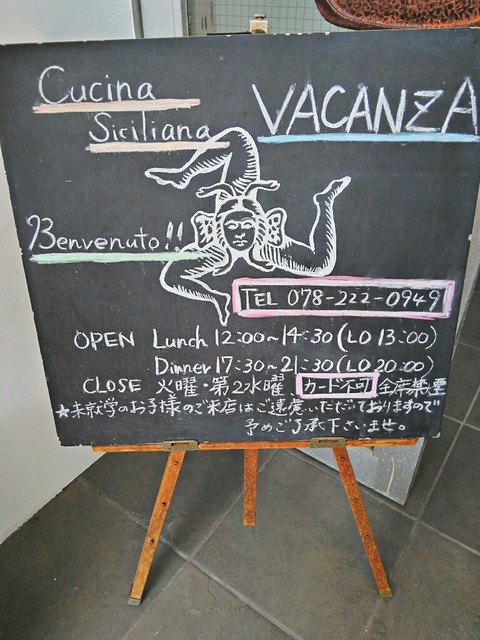 Cucina
Siciliana
VACANZA
Benvenuto!!
TEL 078-222-0949
OPEN Lunch 12:00~14:30(LO 13:00)
Dinner 17:30~21:30(LO 20:00)
CLOSE 火曜・第2水曜 カード不可 全席禁煙
★未就学のお子様のご来店はご遠慮いただいておりますので
予めご了承下さいませ。